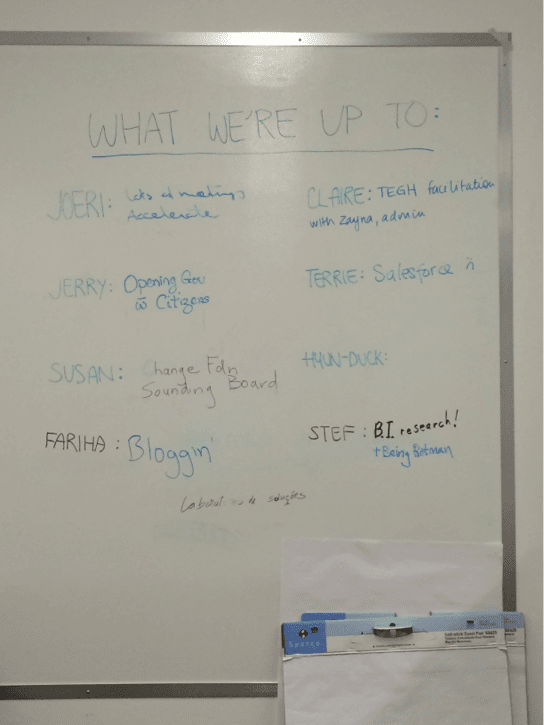 WHAT WE'RE UP TO:
JOERI: Lots of meetings
Accelerate
CLAIRE: TEGH facilitation
with Zayna, admin
JERRY: Opening Gov
w̄ Citizens
TERRIE: Salesforce ñ
SUSAN: Change Fdn
Sounding Board
HYUN-DUCK:
FARIHA: Bloggin'
STEF: B.I research!
+ Being Batman
de soluções
Sparco